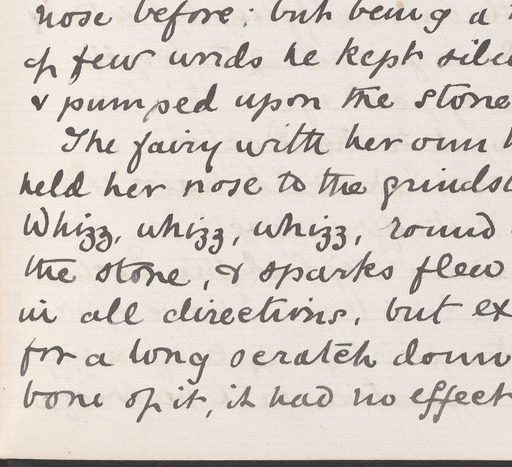 nose before; but being a
of few words he kept
& pumped upon the stone
The fairy with her own
held her nose to the
Whizz, whizz, whizz, round
the stone, & sparks flew
in all directions, but
for a long scratch down
bone of it, it had no effect